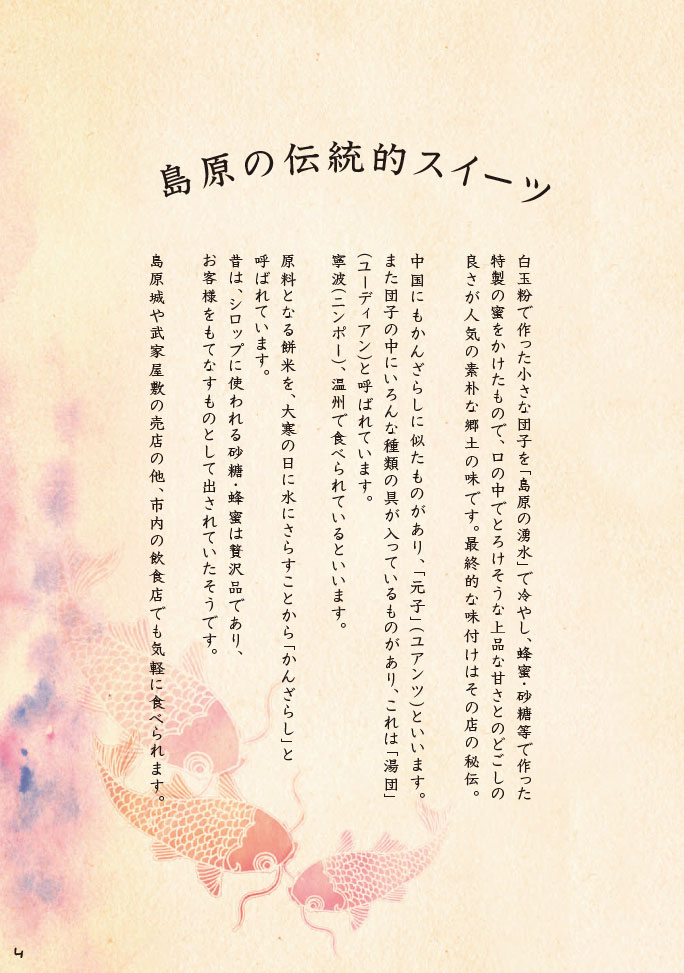 島原の伝統的スイーツ
白玉粉で作った小さな団子を「島原の湧水」で冷やし、蜂蜜・砂糖等で作った
特製の蜜をかけたもので、口の中でとろけそうな上品な甘さとのどごしの
良さが人気の素朴な郷土の味です。最終的な味付けはその店の秘伝。
中国にもかんざらしに似たものがあり、「元子」(ユアンツ)といいます。
また団子の中にいろんな種類の具が入っているものがあり、これは「湯団」
(ユーディアン)と呼ばれています。
寧波(ニンポー)、温州で食べられているといいます。
原料となる餅米を、大寒の日に水にさらすことから「かんざらし」と
呼ばれています。
昔は、シロップに使われる砂糖・蜂蜜は贅沢品であり、
お客様をもてなすものとして出されていたそうです。
島原城や武家屋敷の売店の他、市内の飲食店でも気軽に食べられます。
4